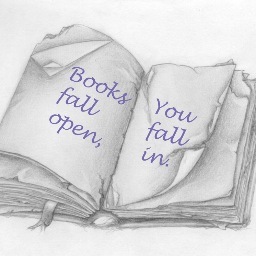 Books
fall
open,
You
fall
in.